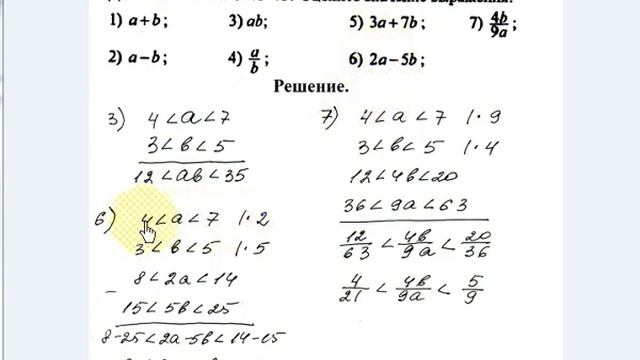 1) a+b; 3) ab; 5) 3a+7b; 7) 4b/9a;
2) a−b; 4) a/b; 6) 2a−5b;
Решение.
3) 4<a<7
3<b<5
12<ab<35
6) 4<a<7 |·2
3<b<5 |·5
− 8<2a<14
15<5b<25
8−25<2a−5b<14−15
7) 4<a<7 |·9
3<b<5 |·4
12<4b<20
36<9a<63
12/63<4b/9a<20/36
4/21<4b/9a<5/9